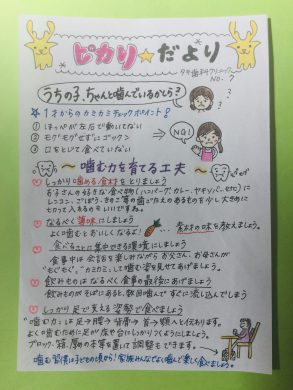 ピカリ☆だより
NO. 7
うちの子、ちゃんと噛んでいるかしら?
☆1才からのカミカミチェックポイント!
① ほっぺが左右で動いてない
② モグモグせずにゴックン
③ 口をとじて食べていない
NO!
~噛む力を育てる工夫~
しっかり噛める食材をとりましょう
お子さんの好きな食べ物(ハンバーグ、カレー、ギョウザetc)に
レンコン、ごぼう、きのこ等の歯ごたえのあるものを少し大きめに
切って入れるのもいいですね。
なるべく薄味にしましょう
よく噛むとおいしくなるよ! 素材の味を教えましょう。
食べることに集中できる環境にしましょう
食事中は会話を楽しみながらお父さん、お母さんが
"もぐもぐ。""カミカミ"して噛む姿を見せてあげましょう。
飲みものはなるべく食事の最後にあげましょう
飲みものがそばにあると、数回噛んですぐに流し込んでしまう
しっかり足で支える姿勢で食べましょう
"噛む力"は足→腰→背骨→首→顎へと伝わります。
よく噛むために足が床や台にしっかりつくようにしましょう。
ブロック、箱、厚めの本等を置いて調整もできます。
噛む習慣は子どもの頃から!家族みんなでよく噛んで楽しく食べましょう。